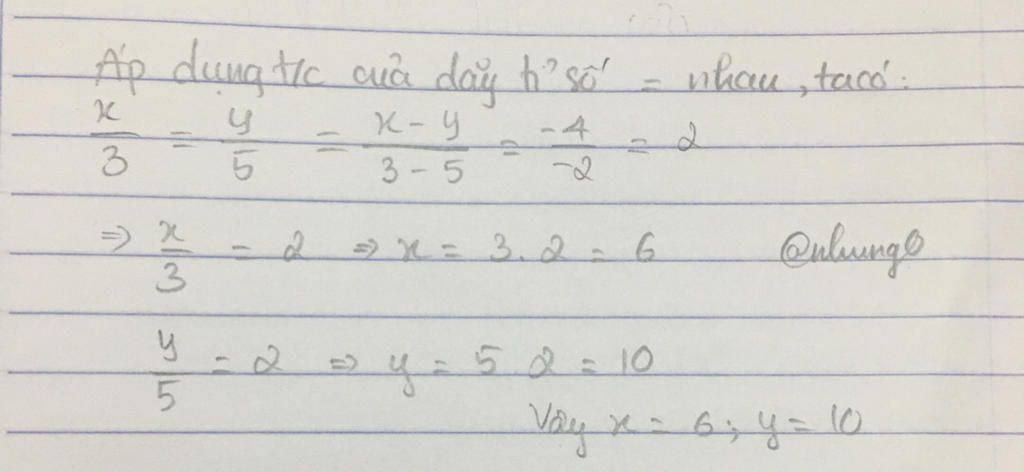 Áp dụng t/c của dãy tỉ số = nhau, ta có:
x/3 = y/5 = x - y/3 - 5 = -4/-2 = 2
=> x/3 = 2 => x = 3. 2 = 6 @nhung8
y/5 = 2 => y = 5 2 = 10
Vậy x = 6; y = 10